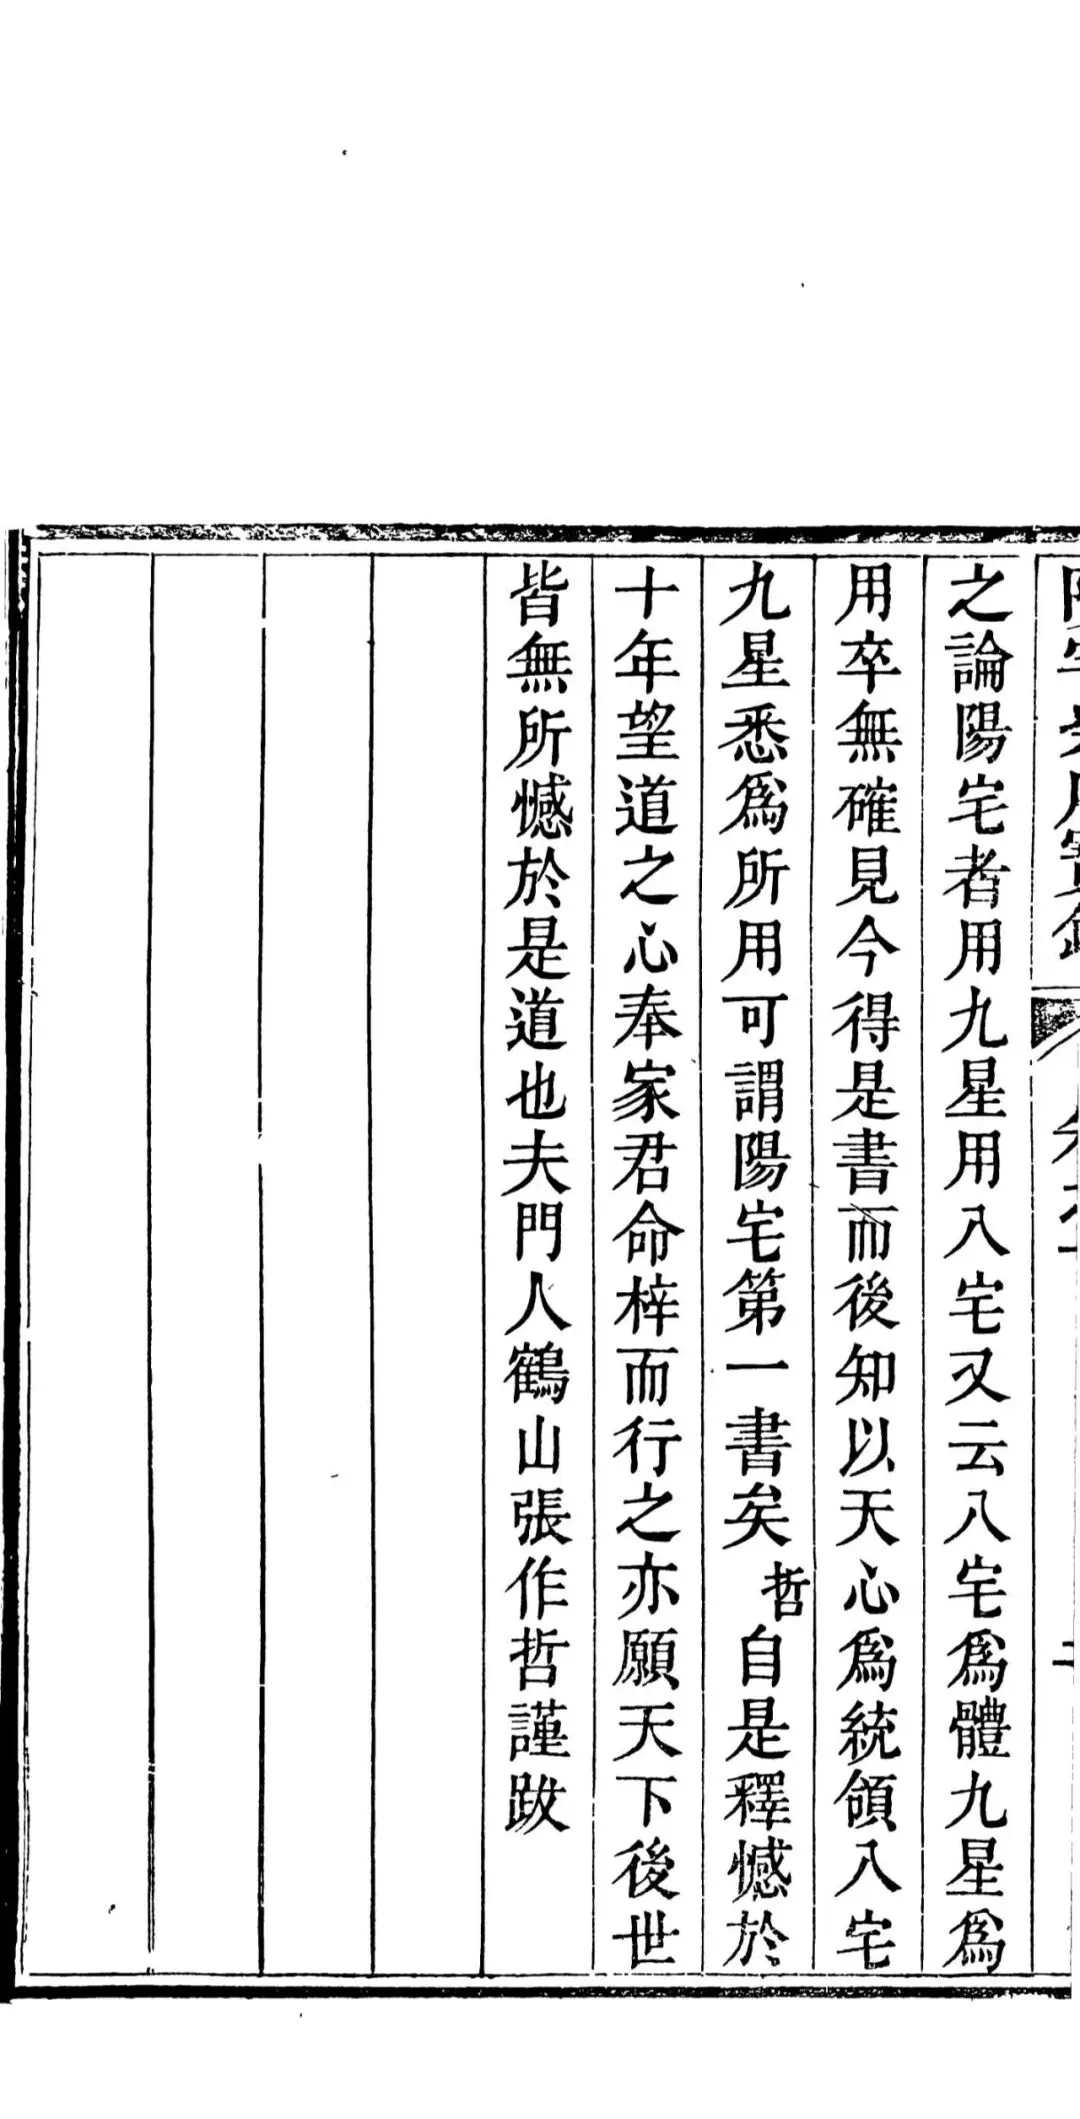 之論陽宅者用九星用八宅又云八宅爲體九星爲
用卒無確見今得是書而後知以天心爲統領八宅
九星悉爲所用可謂陽宅第一書矣哲自是釋憾於
十年望道之心奉家君命梓而行之亦願天下後世
皆無所憾於是道也夫門人鶴山張作哲謹跋